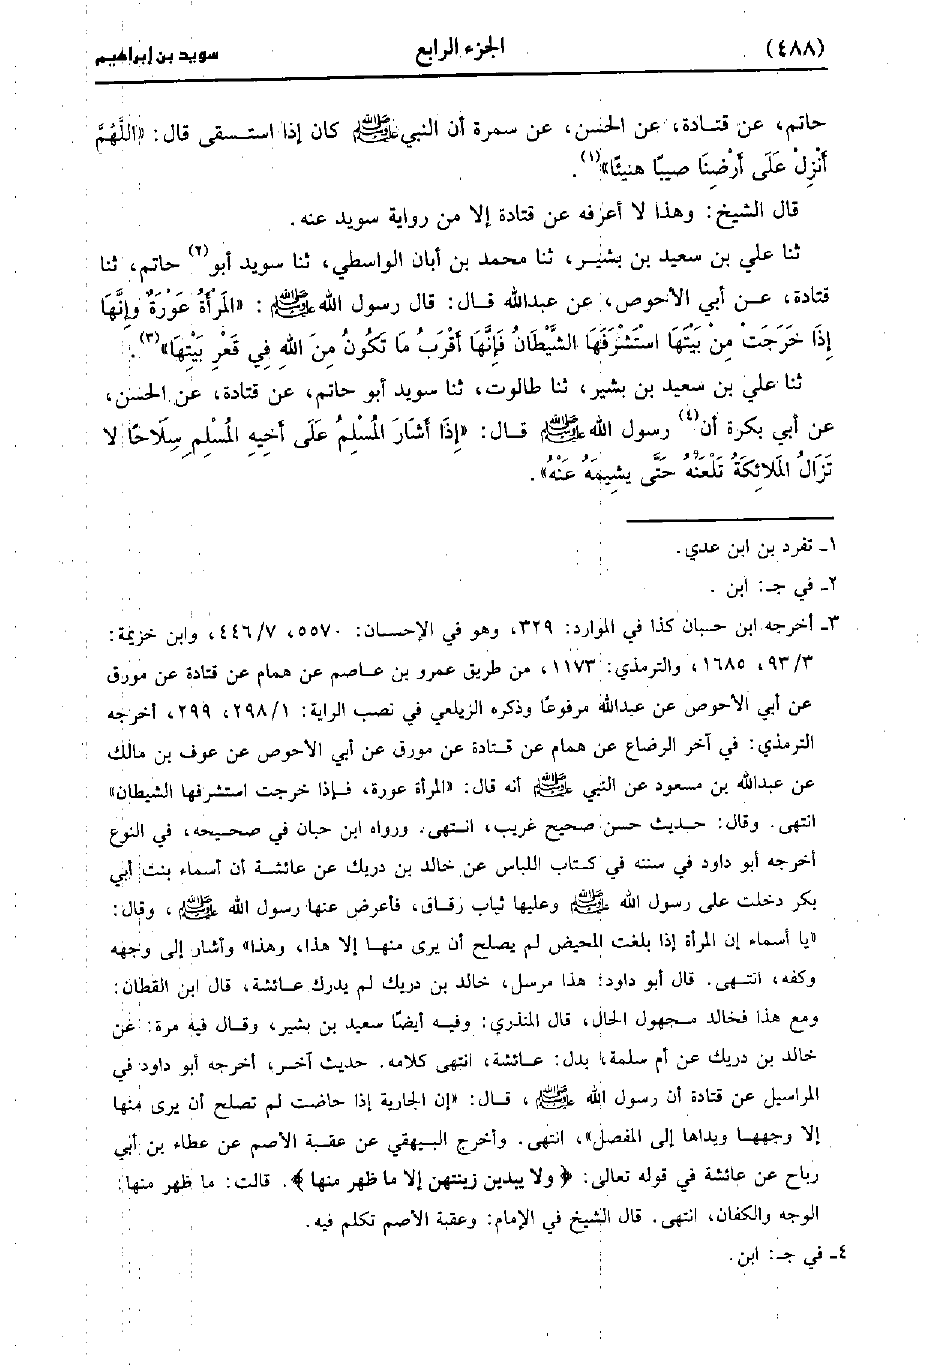 (٤٨٨) الجزء الرابع سويد بن إبراهيم
حاتم، عن قتادة، عن الحسن، عن سمرة أن النبي ﷺ كان إذا استسقى قال: «اللَّهُمَّ
أَنْزِلْ عَلَى أَرْضِنَا صيبًا هنيئًا»(١).
قال الشيخ: وهذا لا أعرفه عن قتادة إلا من رواية سويد عنه.
ثنا علي بن سعيد بن بشير، ثنا محمد بن أبان الواسطي، ثنا سويد أبو(٢) حاتم، ثنا
قتادة، عن أبي الأحوص، عن عبدالله قال: قال رسول الله ﷺ: «المَرْأَةُ عَوْرَةٌ وإِنَّهَا
إِذَا خَرَجَتْ مِنْ بَيْتِهَا اسْتَشْرَفَهَا الشَّيْطَانُ فَإِنَّهَا أَقْرَبُ مَا تَكُونُ مِنَ اللهِ فِي قَعْرِ بَيْتِهَا»(٣).
ثنا علي بن سعيد بن بشير، ثنا طالوت، ثنا سويد أبو حاتم، عن قتادة، عن الحسن،
عن أبي بكرة أن(٤) رسول الله ﷺ قال: «إِذَا أَشَارَ المُسْلِمُ عَلَى أَخِيهِ المُسْلِمِ سِلَاحًا لا
تَزَالُ المَلائِكَةُ تَلْعَنُهُ حَتَّى يشِيمَهُ عَنْهُ».
١ـ تفرد بن ابن عدي.
٢ـ في جـ: ابن .
٣ـ أخرجه ابن حبان كذا في الموارد: ٣٢٩، وهو في الإحسان: ٥٥٧٠، ٤٤٦/٧، وابن خزيمة:
٩٣/٣، ١٦٨٥، والترمذي: ١١٧٣، من طريق عمرو بن عاصم عن همام عن قتادة عن مورق
عن أبي الأحوص عن عبدالله مرفوعًا وذكره الزيلعي في نصب الراية: ٢٩٨/١، ٢٩٩، أخرجه
الترمذي: في آخر الرضاع عن همام عن قتادة عن مورق عن أبي الأحوص عن عوف بن مالك
عن عبدالله بن مسعود عن النبي ﷺ أنه قال: «المرأة عورة، فإذا خرجت استشرفها الشيطان»
انتهى. وقال: حديث حسن صحيح غريب، انتهى. ورواه ابن حبان في صحيحه، في النوع
أخرجه أبو داود في سننه في كتاب اللباس عن خالد بن دريك عن عائشة أن أسماء بنت أبي
بكر دخلت على رسول الله ﷺ وعليها ثياب رقاق، فأعرض عنها رسول الله ﷺ، وقال:
«يا أسماء إن المرأة إذا بلغت المحيض لم يصلح أن يرى منها إلا هذا، وهذا» وأشار إلى وجهه
وكفه، انتهى. قال أبو داود: هذا مرسل، خالد بن دريك لم يدرك عائشة، قال ابن القطان:
ومع هذا فخالد مجهول الحال، قال المنذري: وفيه أيضًا سعيد بن بشير، وقال فيه مرة: عن
خالد بن دريك عن أم سلمة، بدل: عائشة، انتهى كلامه. حديث آخر، أخرجه أبو داود في
المراسيل عن قتادة أن رسول الله ﷺ، قال: «إن الجارية إذا حاضت لم تصلح أن يرى منها
إلا وجهها ويداها إلى المفصل»، انتهى. وأخرج البيهقي عن عقبة الأصم عن عطاء بن أبي
رباح عن عائشة في قوله تعالى: ﴿ولا يبدين زينتهن إلا ما ظهر منها﴾. قالت: ما ظهر منها:
الوجه والكفان، انتهى. قال الشيخ في الإمام: وعقبة الأصم تكلم فيه.
٤ـ في جـ: ابن.